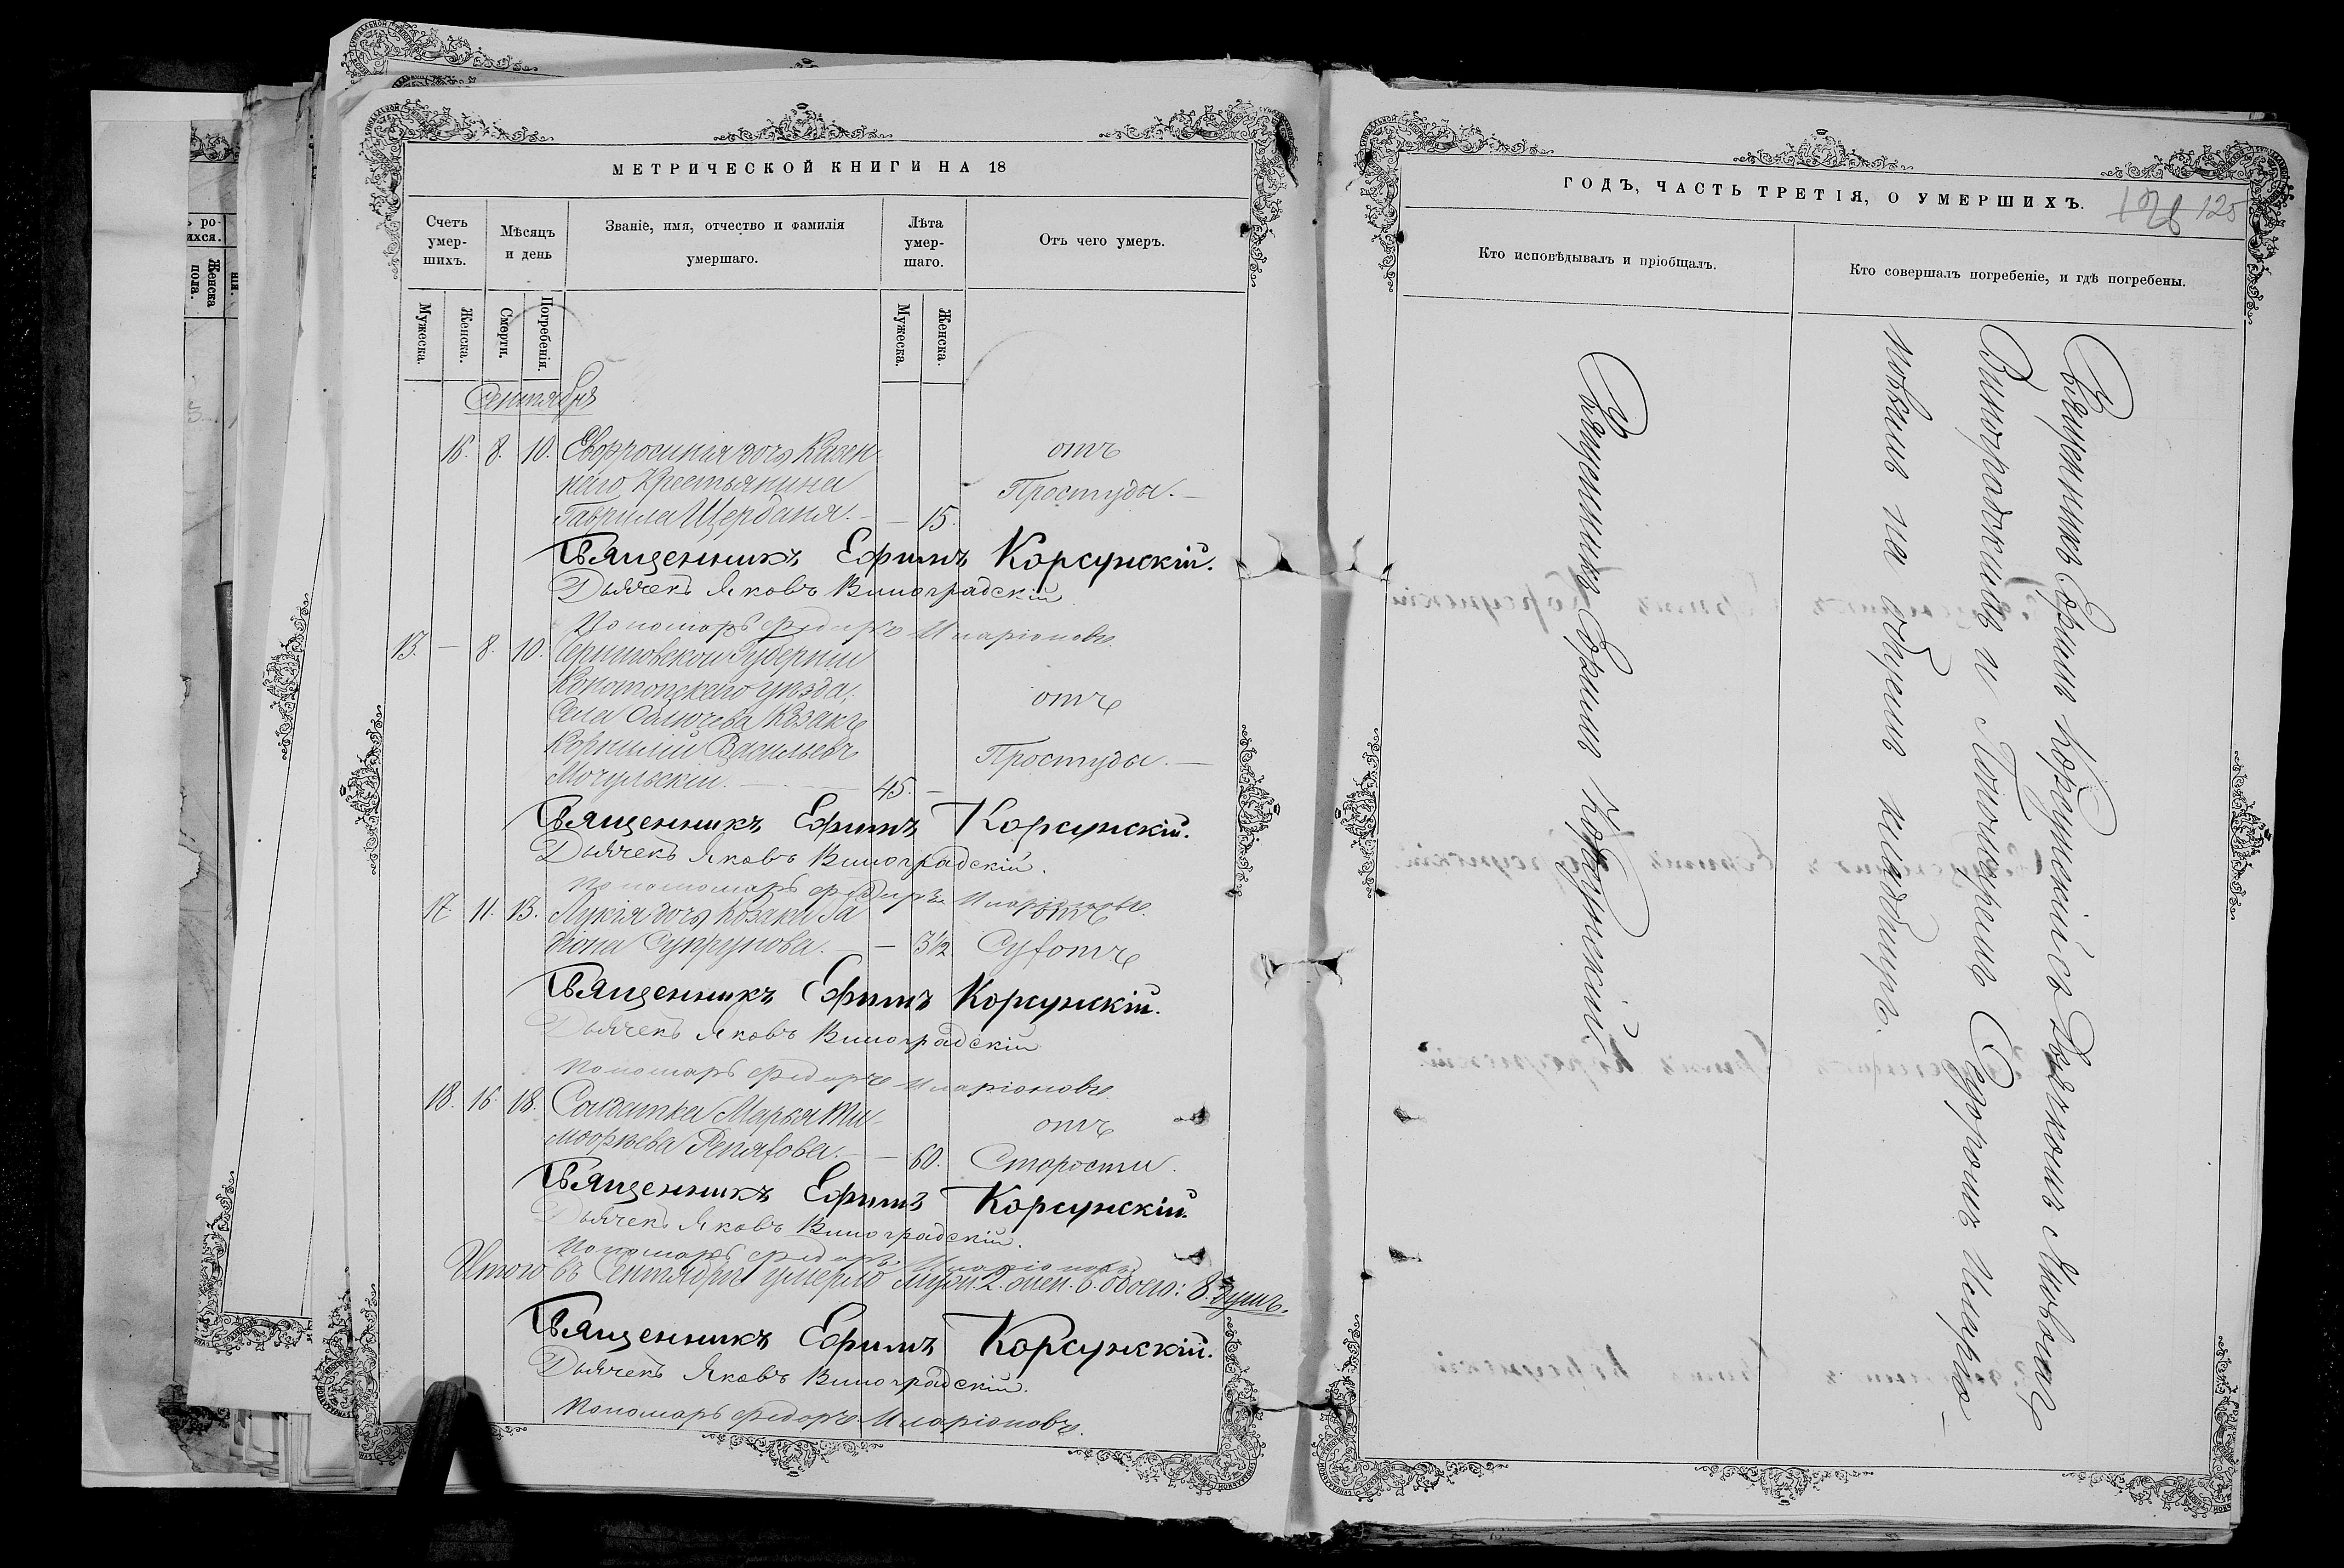 МЕТРИЧЕСКОЙ КНИГИ НА 18
Счетъ умер-шихъ.
Мѣсяцъ и день
Званіе, имя, отчество и фамилія умершаго.
Лѣта умер-шаго.
Отъ чего умеръ.
Мужеска.
Женска.
Смерти.
Погребенія.
Мужеска.
Женска.
Сентябрь
16. 8. 10. Евфросинія дочь Казен-
наго Крестьянина
Гаврила Щербаня. — — 15.
отъ
Простуды. —
Священникъ Ефимъ Корсунскій.
Дьячекъ Яковъ Виноградскій
Пономарь Федоръ Иларіоновъ.
13. — 8. 10. Черниговской Губерніи
Конотопскаго уѣзда,
Села Козакъ
Корнилій Васильевъ
Мочульскій. — 45. —
отъ
Простуды. —
Священникъ Ефимъ Корсунскій.
Дьячекъ Яковъ Виноградскій.
Пономарь Федоръ Иларіоновъ.
17. 11. 13. Лукія дочь Козака Ра
діона Супрунова. — — 3½
отъ
Священникъ Ефимъ Корсунскій.
Дьячекъ Яковъ Виноградскій
Пономарь Федоръ Иларіоновъ
18. 16. 18. Солдатка Марья Ти-
мофѣева — — 60.
отъ
Старости.
Священникъ Ефимъ Корсунскій.
Дьячекъ Яковъ Виноградскій.
Пономарь Федоръ Иларіоновъ
Итого въ Сентябрѣ умерло муж. 2. жен. 6. обоего: 8. душъ.
Священникъ Ефимъ Корсунскій.
Дьячекъ Яковъ Виноградскій.
Пономарь Федоръ Иларіоновъ.
ГОДЪ, ЧАСТЬ ТРЕТІЯ, О УМЕРШИХЪ.
128 125
Кто исповѣдывалъ и пріобщалъ.
Кто совершалъ погребеніе, и гдѣ погребены.
Священникъ Ефимъ Корсунскій.
Священникъ Ефимъ Корсунскій съ Дьячкомъ Яковомъ
Виноградскимъ и Пономаремъ Федоромъ Иларіо-
новымъ на общемъ кладбищѣ.